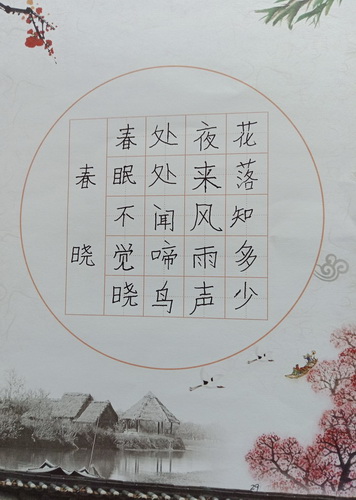 春晓
春眠不觉晓
处处闻啼鸟
夜来风雨声
花落知多少
29